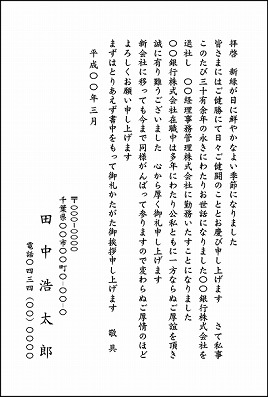 拝啓　新緑が日に鮮やかなよい季節になりました
皆さまにはご健勝にて日々ご健闘のこととお慶び申し上げます　さて私事
このたび三十有余年の永きにわたりお世話になりました〇〇銀行株式会社を
退社し　〇〇経理事務管理株式会社に勤務いたすことになりました
〇〇銀行株式会社在職中は多年にわたり公私ともに一方ならぬご厚誼を頂き
誠に有り難うございました　心から厚く御礼申し上げます
新会社に移っても今まで同様がんばって参りますので変わらぬご厚情のほど
よろしくお願い申し上げます
まずはとりあえず書中をもって御礼かたがた御挨拶申し上げます　敬具
平成〇〇年三月
〒〇〇〇-〇〇〇〇
千葉県〇〇市〇〇町〇-〇〇-〇
田中浩太郎
電話〇四三四（〇〇）〇〇〇〇